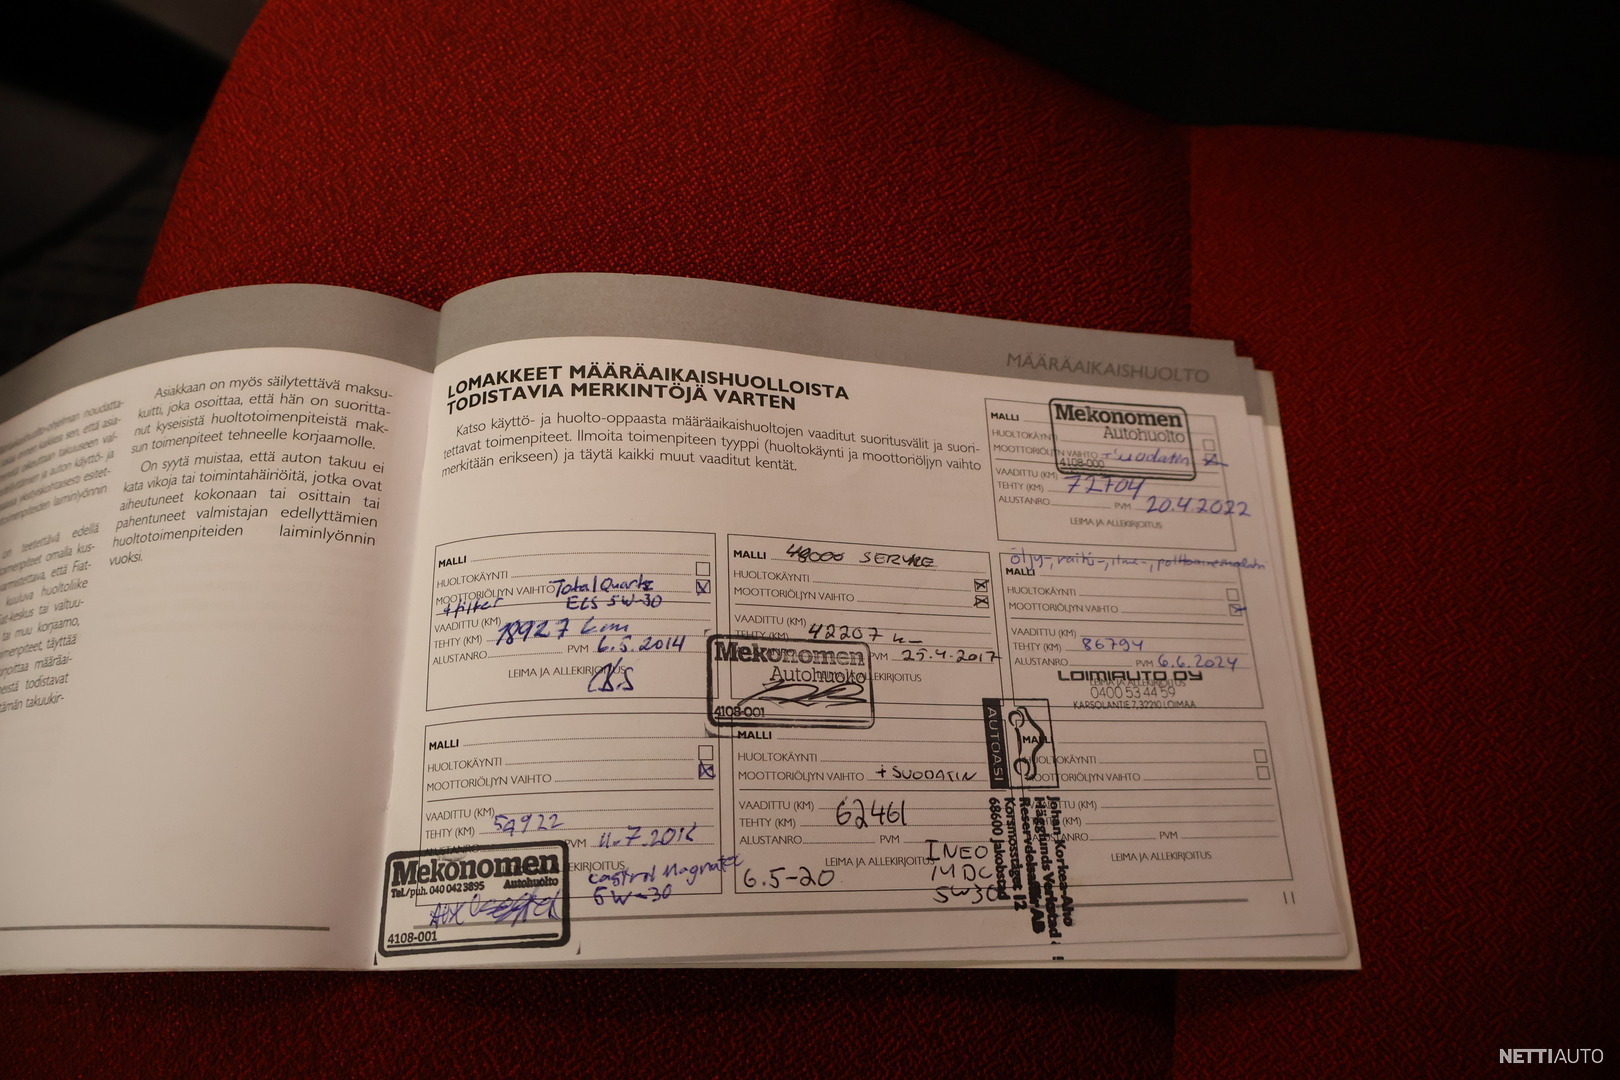 Asiakkaan on myös säilytettävä maksu-
kuitti, joka osoittaa, että hän on suoritta-
nut kyseisistä huoltotoimenpiteistä mak-
sun toimenpiteet tehneelle korjaamolle.
On syytä muistaa, että auton takuu ei
kata vikoja tai toimintahäiriöitä, jotka ovat
aiheutuneet kokonaan tai osittain tai
pahentuneet valmistajan edellyttämien
huoltotoimenpiteiden laiminlyönnin
vuoksi.
MÄÄRÄAIKAISHUOLTO
LOMAKKEET MÄÄRÄAIKAISHUOLLOISTA
TODISTAVIA MERKINTÖJÄ VARTEN
Katso käyttö- ja huolto-oppaasta määräaikaishuoltojen vaaditut suoritusvälit ja suori-
tettavat toimenpiteet. Ilmoita toimenpiteen tyyppi (huoltokäynti ja moottoriöljyn vaihto
merkitään erikseen) ja täytä kaikki muut vaaditut kentät.
MALLI
Mekonomen
Autohuolto
MOOTTORIÖLJYN VAIHTO +Suodatin
4108-000
VAADITTU (KM)
TEHTY (KM) 72704
ALUSTANRO PVM 20.4.2022
LEIMA JA ALLEKIRJOITUS
MALLI
HUOLTOKÄYNTI
MOOTTORIÖLJYN VAIHTO Total Quartz
+filter ECS 5W-30
VAADITTU (KM)
TEHTY (KM) 18927 km
ALUSTANRO PVM 6.5.2014
LEIMA JA ALLEKIRJOITUS
MALLI 48000 SERVICE
HUOLTOKÄYNTI
MOOTTORIÖLJYN VAIHTO
VAADITTU (KM)
TEHTY (KM) 42207
PVM 25.4.2017
LEIMA JA ALLEKIRJOITUS
Mekonomen
Autohuolto
4108-001
öljy-, raitis-, ilma-,
MALLI
HUOLTOKÄYNTI
MOOTTORIÖLJYN VAIHTO
VAADITTU (KM)
TEHTY (KM) 86794
ALUSTANRO PVM 6.6.2024
LOIMIAUTO OY
LEIMA JA ALLEKIRJOITUS
0400 53 44 59
KARSOLANTIE 7, 32210 LOIMAA
MALLI
HUOLTOKÄYNTI
MOOTTORIÖLJYN VAIHTO
VAADITTU (KM)
TEHTY (KM) 59922
ALUSTANRO PVM 11.7.2018
Castrol Magnatec
5W-30
Mekonomen
Tel./puh. 040 042 3895 Autohuolto
4108-001
MALLI
HUOLTOKÄYNTI
MOOTTORIÖLJYN VAIHTO + SUODATIN
VAADITTU (KM)
TEHTY (KM) 62461
ALUSTANRO PVM
LEIMA JA ALLEKIRJOITUS
6.5-20
INEO
MDC
5W30
AUTOASI
Johan Korkea-Aho
Hägglunds Verkstad
Korsmossväget 12
68600 Jakobstad
MALLI
HUOLTOKÄYNTI
MOOTTORIÖLJYN VAIHTO
VAADITTU (KM)
TEHTY (KM)
ALUSTANRO PVM
LEIMA JA ALLEKIRJOITUS
11
NETTIAUTO